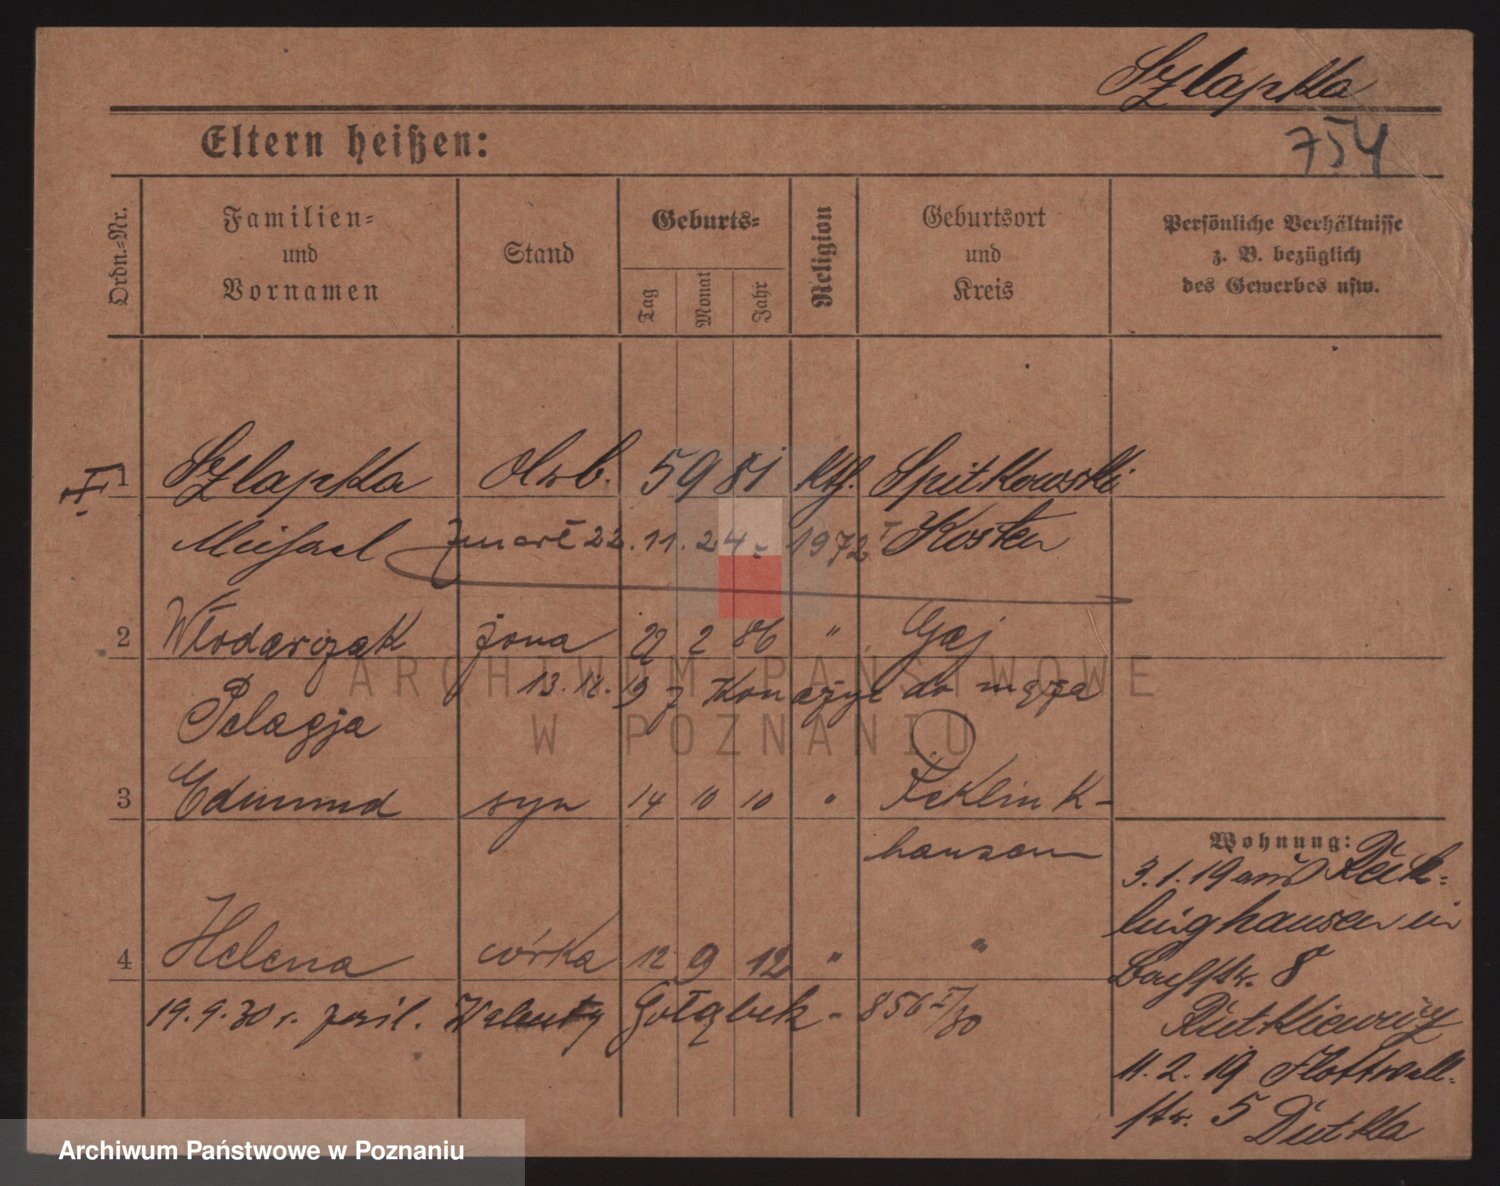 Szlapka
Eltern heißen:
754
Ordn.-Nr.
Familien-
und
Vornamen
Stand
Geburts-
Tag
Monat
Jahr
Religion
Geburtsort
und
Kreis
Persönliche Verhältnisse
z. B. bezüglich
des Gewerbes usw.
I 1 Szlapka Arb. 5 9 81 kth. Spitkowski
Michael zmarł 22.11.24 - 1972 I Kosten
2 Włodarczak żona 22 2 86 " Gaj
13.12.19 z do męża
Pelagja
3 Edmund syn 14 10 10 " Reklink-
hausen
4 Helena córka 12 9 12 " "
19.9.30 r. Walenty Gołąbek - 856 I/30
Wohnung:
3.1.19 aus Reck-
linghausen in
Bachstr. 8
Rutkiewicz
11.2.19 Flottwell-
str. 5 Dutka
ARCHIWUM PAŃSTWOWE
W POZNANIU
Archiwum Państwowe w Poznaniu